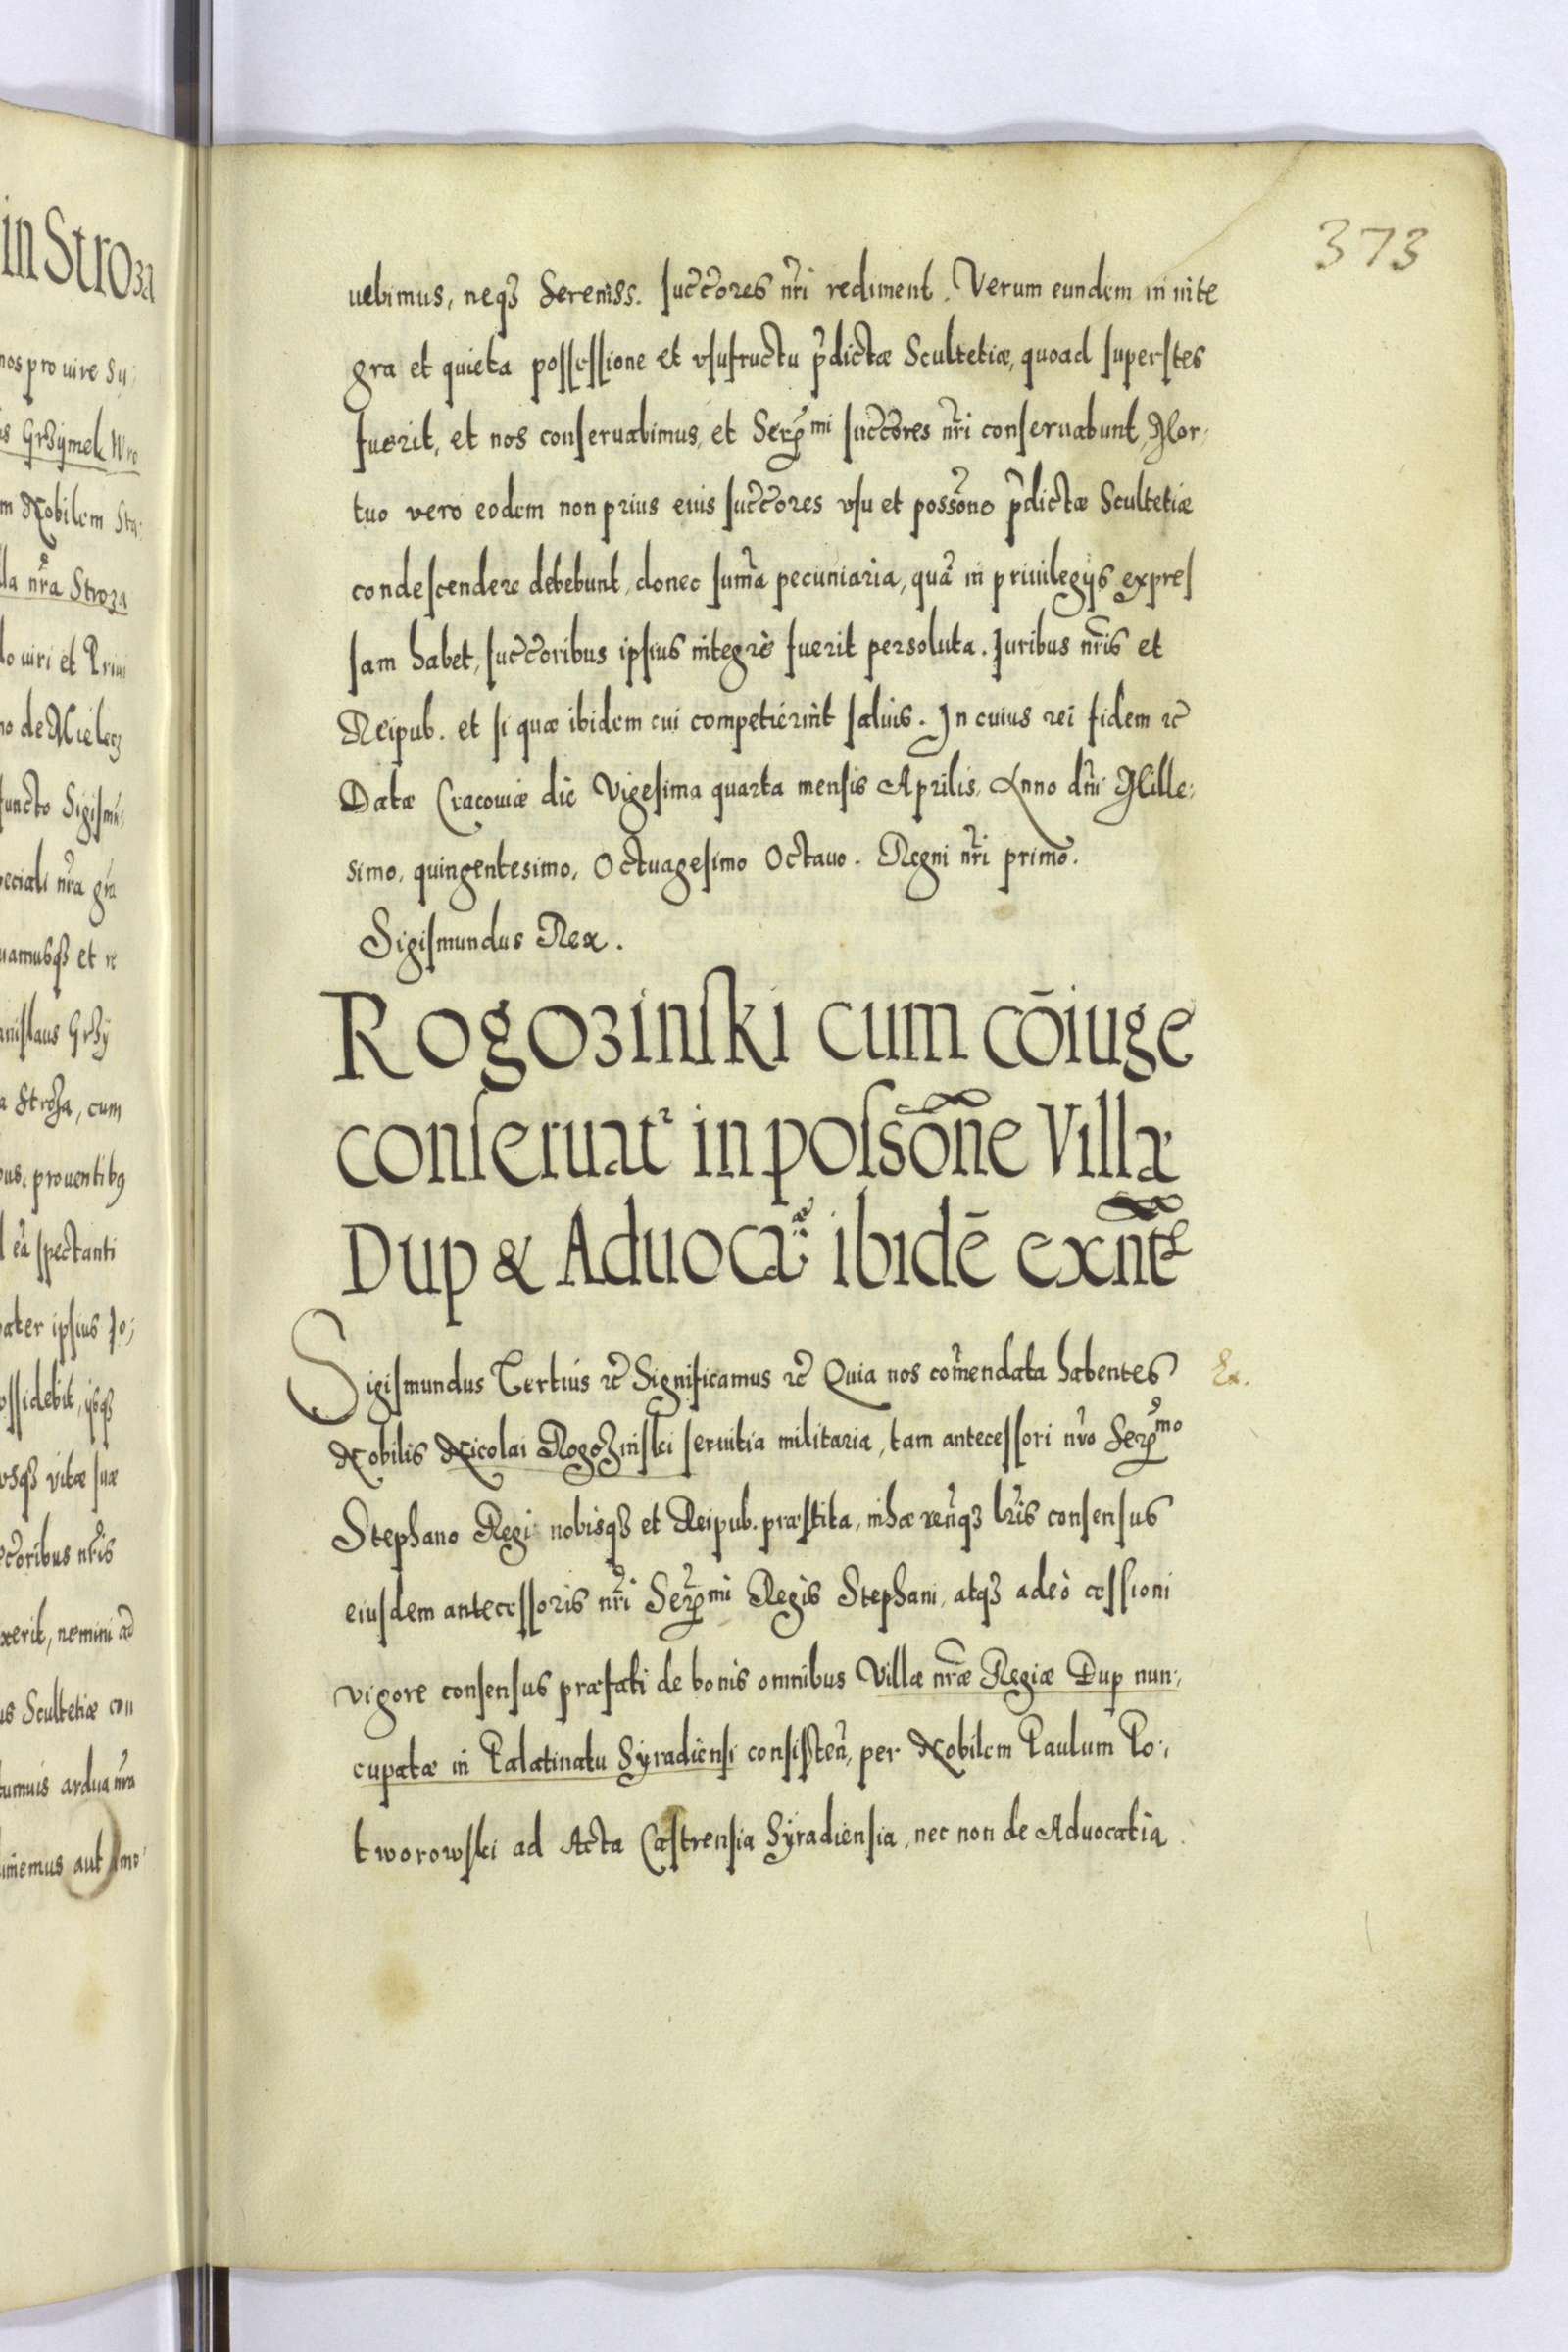 in Stroza
nos pro uire Su
Grzymek Wro
m Nobilem Sta
la nr̃a Stroza
do uiri et Priui
no de Mielecz
functo Sigismũ
peciali nr̃a grã
uamusqȝ et re
anislaus Grzy
a Stroza, cum
bus, prouentibꝯ
eã spectanti
pater ipsius Jo;
ossidebit,
usqȝ vitæ suæ
cc̃oribus nr̃is
xerit, nemini ad
us Scultetiæ con
tumuis ardua nr̃a
imemus aut
373
uebimus, neqȝ Sereniss. succ̃ores nr̃i rediment. Verum eundem in inte
gra et quieta possessione et vsufructu p̃dictæ Scultetiæ, quoad superstes
fuerit, et nos conseruabimus, et Ser̃mi succ̃ores nr̃i conseruabunt, Mor-
tuo vero eodem non prius eius succ̃ores vsu et possõne p̃dictæ Scultetiæ
condescendere debebunt, donec sum̃a pecuniaria, quã in priuilegijs expres
sam habet, succ̃oribus ipsius integrè fuerit persoluta. Juribus nr̃is et
Reipub. et si quæ ibidem cui competierint saluis. In cuius rei fidem ꝛc̃
Datæ Cracouiæ die Vigesima quarta mensis Aprilis, Anno dñi Mille;
simo, quingentesimo, Octuagesimo Octauo. Regni nr̃i primo.
Sigismundus Rex.
Rogozinski cum cõiuge
conseruat᷑ in possõne Villæ
Dup & Aduocaæ ibidẽ exñt
Sigismundus Tertius ꝛc̃ Significamus ꝛc̃ Quia nos com̃endata habentes
Ex.
Nobilis Nicolai Rogozinski seruitia militaria, tam antecessori nr̃o Ser̃mo
Stephano Regi nobisqȝ et Reipub. præstita, inhærenᷤqȝ lr̃is consensus
eiusdem antecessoris nr̃i Ser̃mi Regis Stephani, atqȝ adeò cessioni
vigore consensus præfati de bonis omnibus Villæ nr̃æ Regiæ Dup nun;
cupatæ in Palatinatu Syradiensi consisteñ, per Nobilem Paulum Po;
tworowski ad Acta Castrensia Syradiensia, nec non de Aduocatia